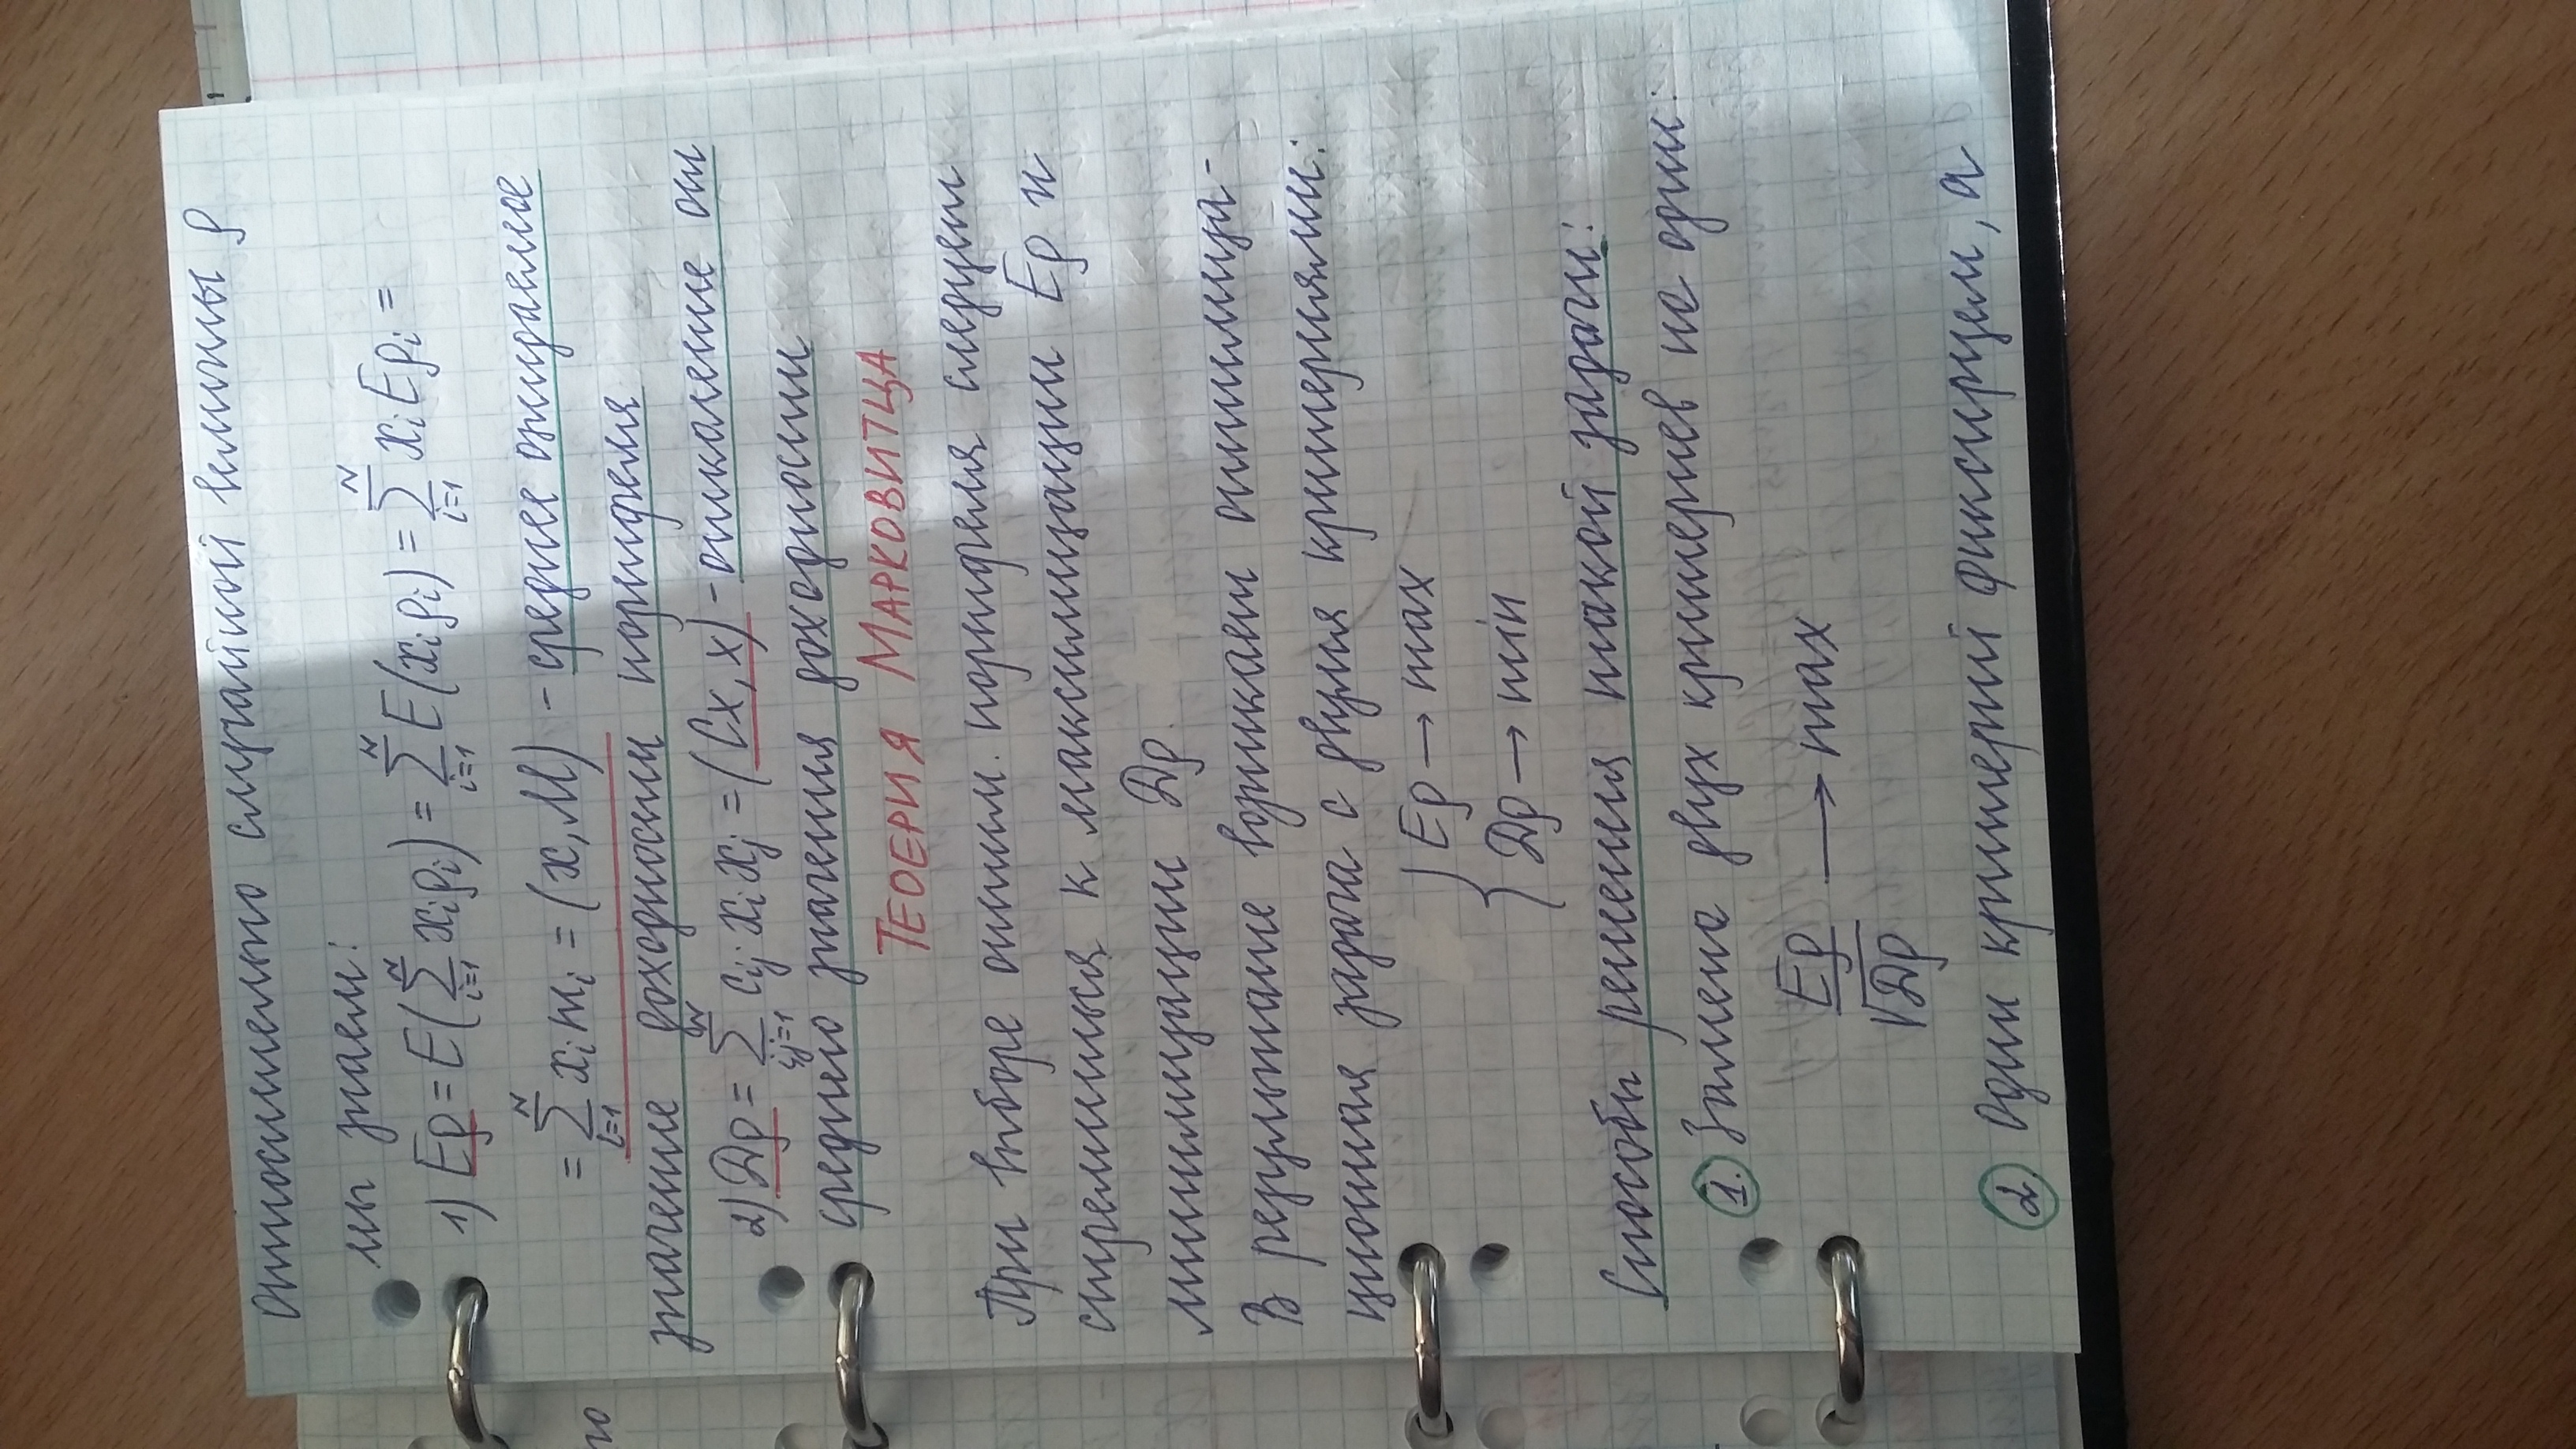 относительно случайной величины ρ
мы знаем:
1) Eρ = E(∑_{i=1}^{N} x_i ρ_i) = ∑_{i=1}^{N} E(x_i ρ_i) = ∑_{i=1}^{N} x_i Eρ_i =
= ∑_{i=1}^{N} x_i m_i = (x, M) - среднее ожидаемое
значение доходности портфеля
2) Dρ = ∑_{i,j=1}^{N} c_{ij} x_i x_j = (Cx, x) - отклонение от
среднего значения доходности
ТЕОЕРИЯ МАРКОВИТЦА
При выборе оптим. портфеля следует
стремиться к максимизации Eρ и
минимизации Dρ.
В результате возникает оптимиза-
ционная задача с двумя критериями:
{ Eρ → max
Dρ → min
Способы решения такой задачи:
1. Замена двух критериев на один:
Eρ / √Dρ → max
2. Один критерий фиксируем, а